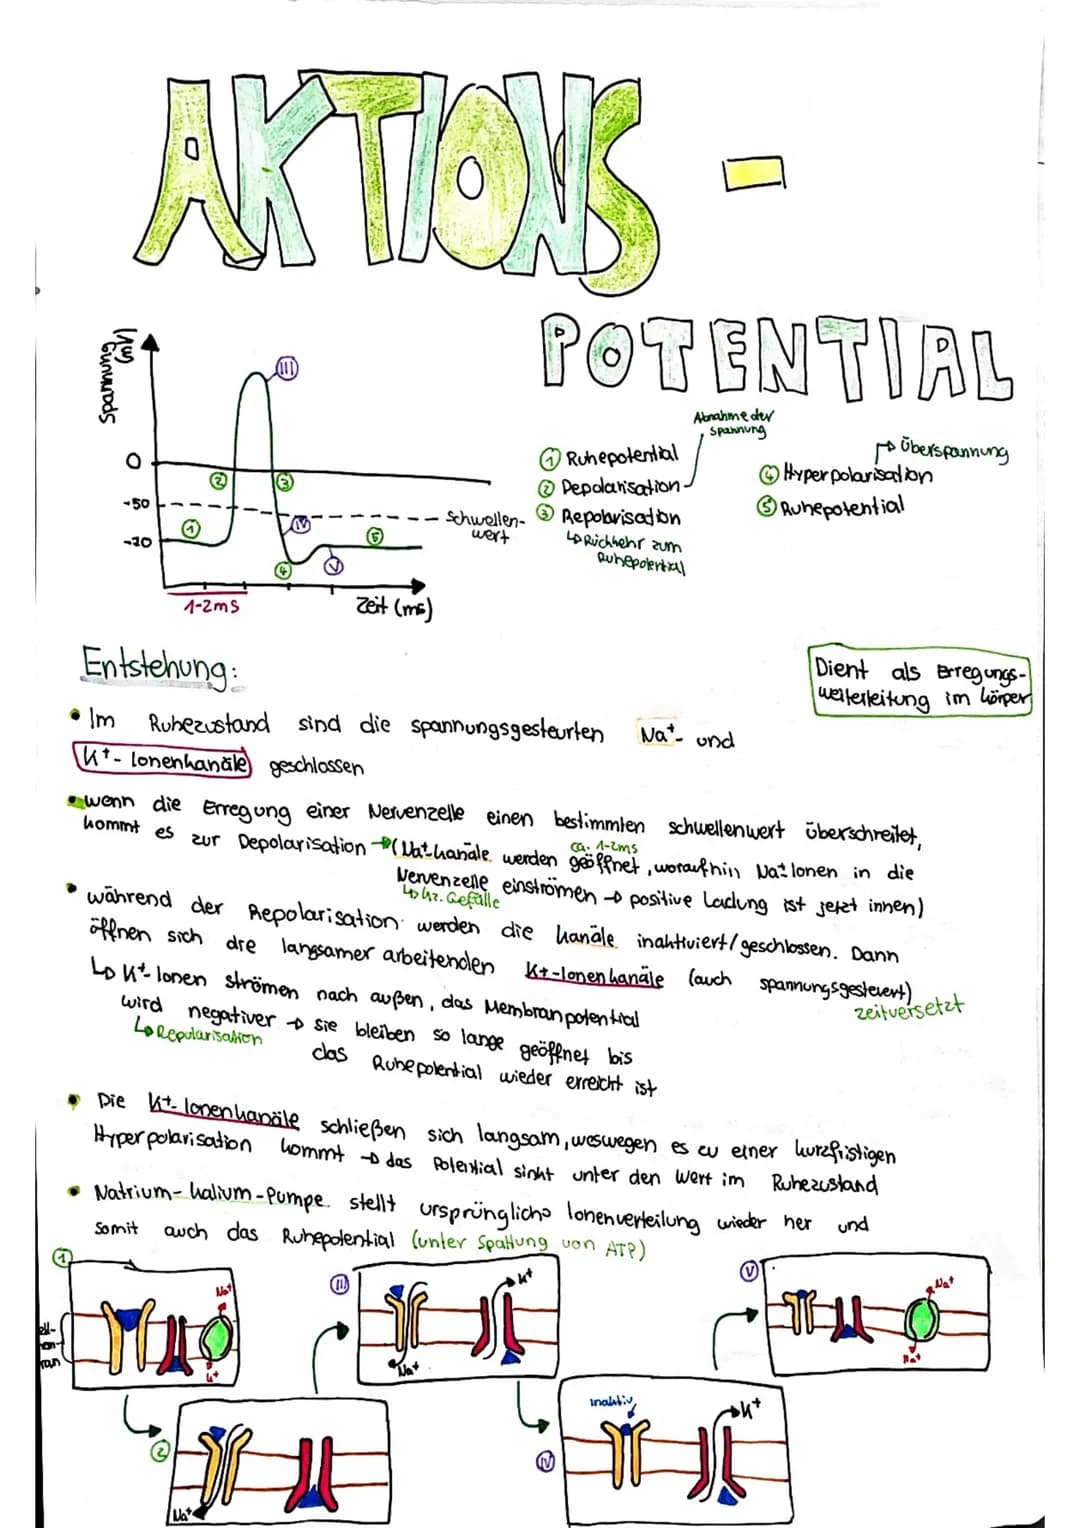 AKTIONS-
POTENTIAL
Spannung
(mV)
III
0
2
3
-50
1
IV
Schwellen-
wert
-70
5
4
V
1-2ms
Zeit (ms)
Abnahme der
Spannung
1 Ruhepotential
2 Depolarisation
3 Repolarisation
↳ Rückkehr zum
Ruhepotential
→ Überspannung
4 Hyperpolarisation
5 Ruhepotential
Entstehung:
Dient als Erregungs-
weiterleitung im Körper
• Im Ruhezustand sind die spannungsgesteurten Na⁺- und
K⁺-Ionenkanäle geschlossen
• wenn die Erregung einer Nervenzelle einen bestimmten schwellenwert überschreitet,
kommt es zur Depolarisation → (Na⁺-kanäle werden geöffnet, woraufhin Na⁺Ionen in die
ca. 1-2ms
Nervenzelle einströmen → positive Ladung ist jetzt innen)
↳ kz. Gefälle
• während der Repolarisation werden die Kanäle inaktiviert/geschlossen. Dann
öffnen sich die langsamer arbeitenden K+-Ionenkanäle (auch spannungsgesteuert)
zeitversetzt
↳ K⁺-Ionen strömen nach außen, das Membranpotential
wird negativer → sie bleiben so lange geöffnet bis
↳ Repolarisation
das Ruhepotential wieder erreicht ist
• Die K⁺-Ionenkanäle schließen sich langsam, weswegen es zu einer kurzfristigen
Hyperpolarisation kommt → das Potential sinkt unter den Wert im Ruhezustand
• Natrium-Kalium-Pumpe stellt ursprüngliche Ionenverteilung wieder her und
somit auch das Ruhepotential (unter Spaltung von ATP)
1
Na⁺
K⁺
III
K⁺
Na⁺
V
Na⁺
2
Na⁺
inaktiv
K⁺
IV